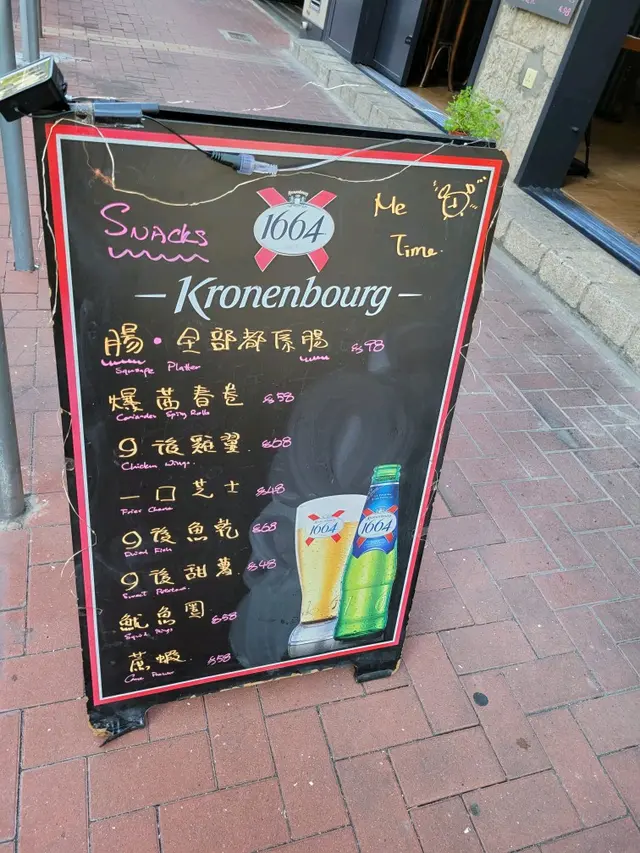 Snacks
1664
Me
Time.
Kronenbourg
腸・全部都係腸 $98
Sausage Platter
爆茜春卷 $58
Coriander Spring Rolls
9後雞翼 $58
Chicken Wings
一口芝士 $48
9後魚乾 $68
Dried Fish
9後甜薯 $48
Sweet Potatoes
魷魚圈 $58
Squid Rings
蔗蝦 $58
1664
1664